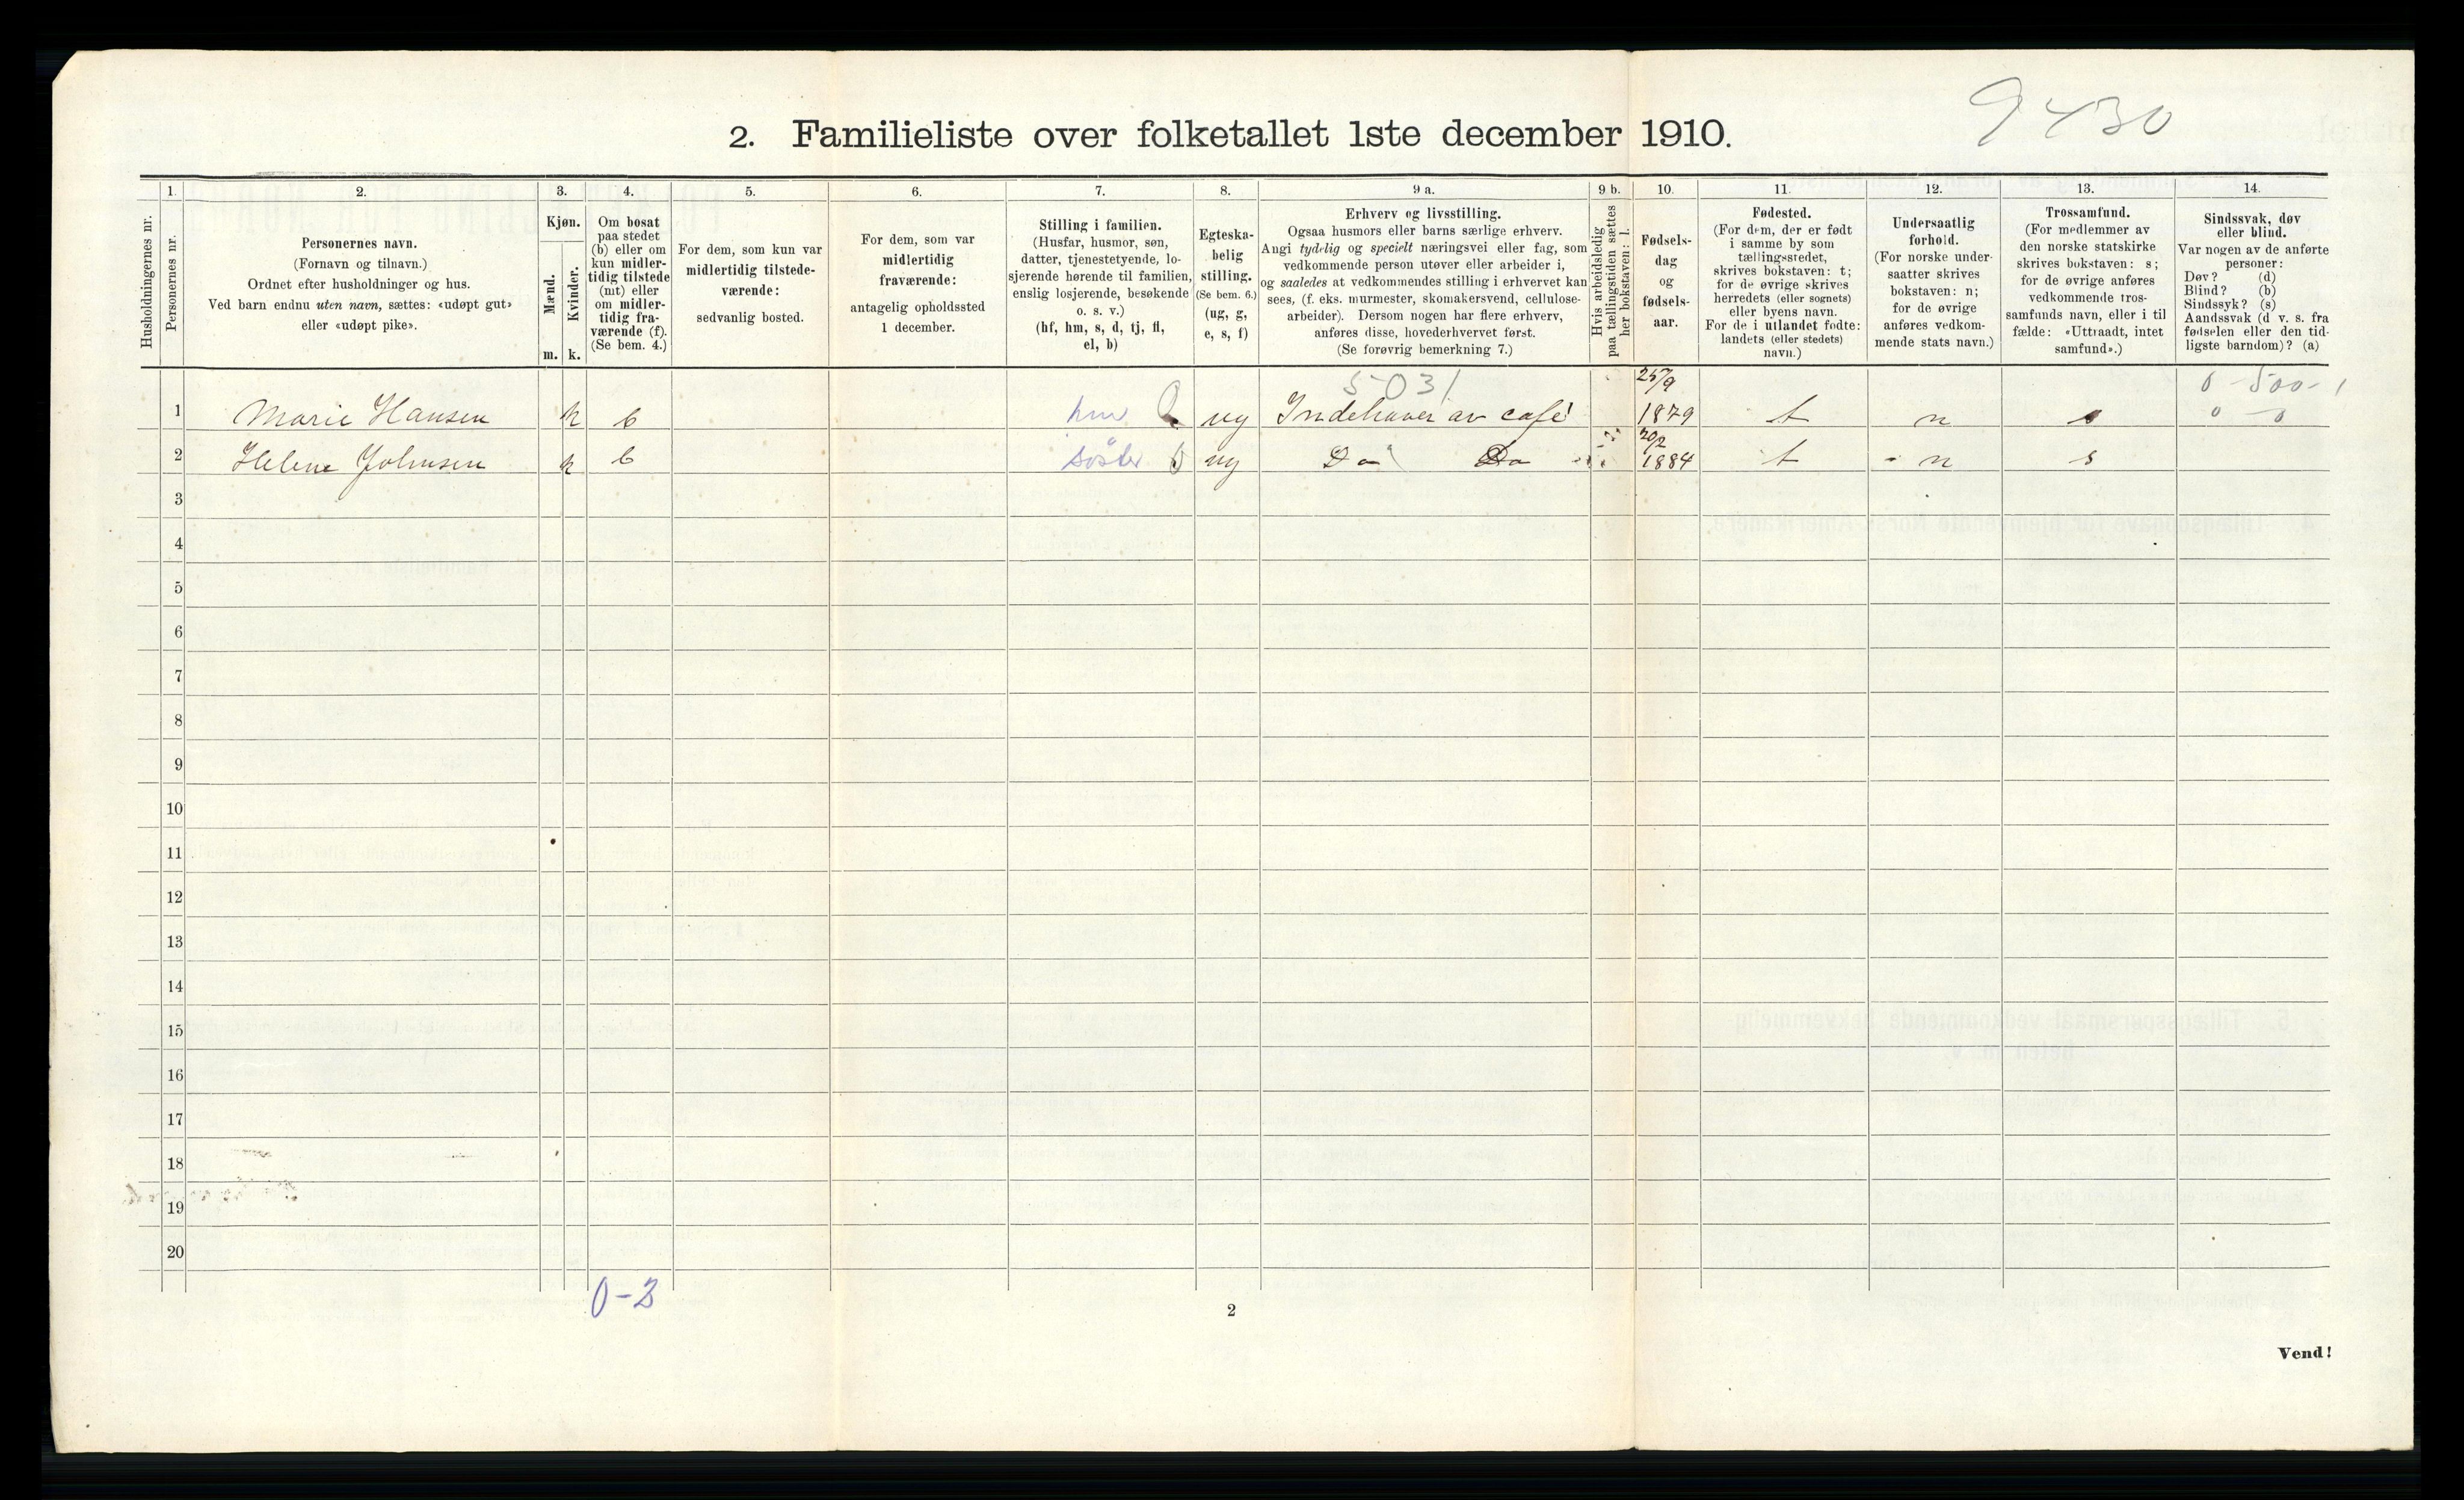 9430
2. Familieliste over folketallet 1ste december 1910.
Husholdningernes nr.
1.
Personernes nr.
2.
Personernes navn.
(Fornavn og tilnavn.)
Ordnet efter husholdninger og hus.
Ved barn endnu uten navn, sættes: «udøpt gut»
eller «udøpt pike».
3.
Kjøn.
Mænd.
Kvinder.
m. k.
4.
Om bosat
paa stedet
(b) eller om
kun midler-
tidig tilstede
(mt) eller
om midler-
tidig fra-
værende (f).
(Se bem. 4.)
5.
For dem, som kun var
midlertidig tilstede-
værende:
sedvanlig bosted.
6.
For dem, som var
midlertidig
fraværende:
antagelig opholdssted
1 december.
7.
Stilling i familien.
(Husfar, husmor, søn,
datter, tjenestetyende, lo-
sjerende hørende til familien,
enslig losjerende, besøkende
o. s. v.)
(hf, hm, s, d, tj, fl,
el, b)
8.
Egteska-
belig
stilling.
(Se bem. 6.)
(ug, g,
e, s, f)
9 a.
Erhverv og livsstilling.
Ogsaa husmors eller barns særlige erhverv.
Angi tydelig og specielt næringsvei eller fag, som
vedkommende person utøver eller arbeider i,
og saaledes at vedkommendes stilling i erhvervet kan
sees, (f. eks. murmester, skomakersvend, cellulose-
arbeider). Dersom nogen har flere erhverv,
anføres disse, hovederhvervet først.
(Se forøvrig bemerkning 7.)
9 b.
Hvis arbeidsledig
paa tællingstiden sættes
her bokstaven: l.
10.
Fødsels-
dag
og
fødsels-
aar.
11.
Fødested.
(For dem, der er født
i samme by som
tællingsstedet,
skrives bokstaven: t;
for de øvrige skrives
herredets (eller sognets)
eller byens navn.
For de i utlandet fødte:
landets (eller stedets)
navn.)
12.
Undersaatlig
forhold.
(For norske under-
saatter skrives
bokstaven: n;
for de øvrige
anføres vedkom-
mende stats navn.)
13.
Trossamfund.
(For medlemmer av
den norske statskirke
skrives bokstaven: s;
for de øvrige anføres
vedkommende tros-
samfunds navn, eller i til
fælde: «Uttraadt, intet
samfund».)
14.
Sindssvak, døv
eller blind.
Var nogen av de anførte
personer:
Døv? (d)
Blind? (b)
Sindssyk? (s)
Aandssvak (d v. s. fra
fødselen eller den tid-
ligste barndom)? (a)
5-031 25/9 0-500-1
1 Marie Hansen k b hm ug Indehaver av café 1879 t n s 0-0
20/2
2 Helene Johnsen k b søster b ug Do Do 1884 t n s
3
4
5
6
7
8
9
10
11
12
13
14
15
16
17
18
19
20
0-2
2
Vend!